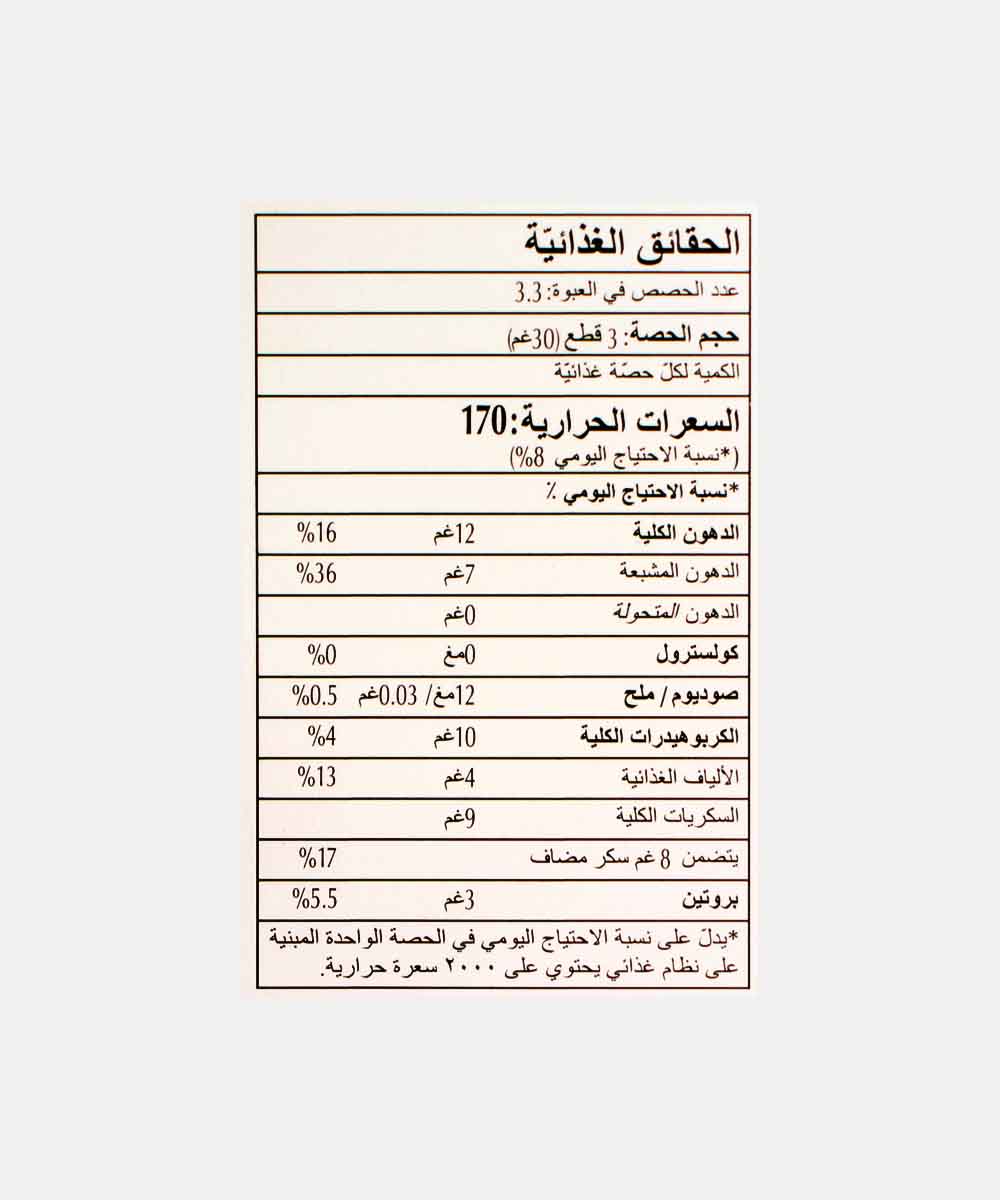 الحقائق الغذائيّة
عدد الحصص في العبوة: 3.3
حجم الحصة: 3 قطع (30غم)
الكمية لكلّ حصّة غذائيّة
السعرات الحرارية: 170
(*نسبة الاحتياج اليومي 8%)
*نسبة الاحتياج اليومي ٪
الدهون الكلية 12غم 16%
الدهون المشبعة 7غم 36%
الدهون المتحولة 0غم
كولسترول 0مغ 0%
صوديوم / ملح 12مغ/ 0.03غم 0.5%
الكربوهيدرات الكلية 10غم 4%
الألياف الغذائية 4غم 13%
السكريات الكلية 9غم
يتضمن 8 غم سكر مضاف 17%
بروتين 3غم 5.5%
*يدلّ على نسبة الاحتياج اليومي في الحصة الواحدة المبنية
على نظام غذائي يحتوي على ٢٠٠٠ سعرة حرارية.